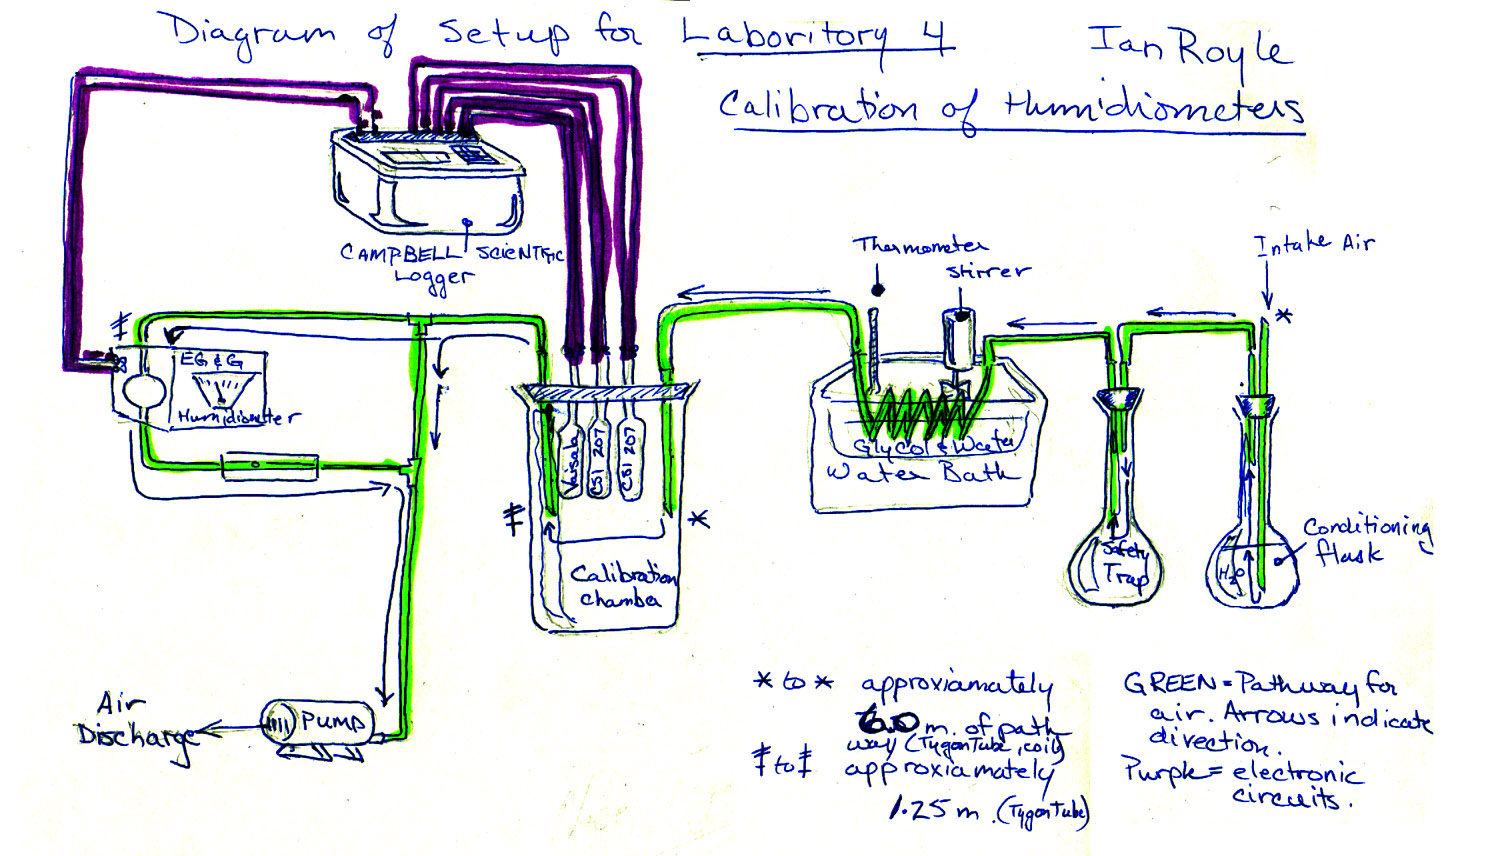 Diagram of Setup for Laboritory 4
Ian Royle
Calibration of Humidiometers
CAMPBELL SCIENTIFIC
Logger
Thermometer
stirrer
Intake Air
*
‡
EG & G
Humidiometer
Vaisala
CSI 207
CSI 207
Glycol & Water
Water Bath
‡
*
Calibration
Chamber
Safety
Trap
H2O
Conditioning
flask
Air
Discharge
PUMP
* to * approxiamately
6.0 m. of path
way (Tygon Tube, coil)
‡ to ‡ approxiamately
1.25 m. (Tygon Tube)
GREEN = Pathway for
air. Arrows indicate
direction.
Purple = electronic
circuits.